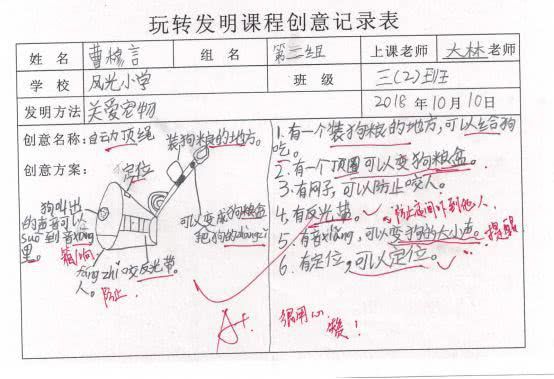 玩转发明课程创意记录表
姓 名 曹 言 组 名 第二组 上课老师 大林老师
学 校 凤光小学 班 级 三(2)班
发明方法 关爱宠物 2018年10月10日
创意名称: 顶绳
装狗粮的地方。
创意方案:
定位
狗叫出
的声音可以
suō到音xiǎng
里。
箱/响
可以变成狗粮盆
把狗的
fáng zhǐ咬反光带。
人。
防止
1.有一个装狗粮的地方,可以给狗
吃。
2.有一个顶圈可以变狗粮盆。
3.有网子,可以防止咬人。
4.有反光带。
防止夜间吓到他人
5.有音xiǎng,可以变狗的大小声。
提醒
6.有定位,可以定位。
A+
很用心
赞!